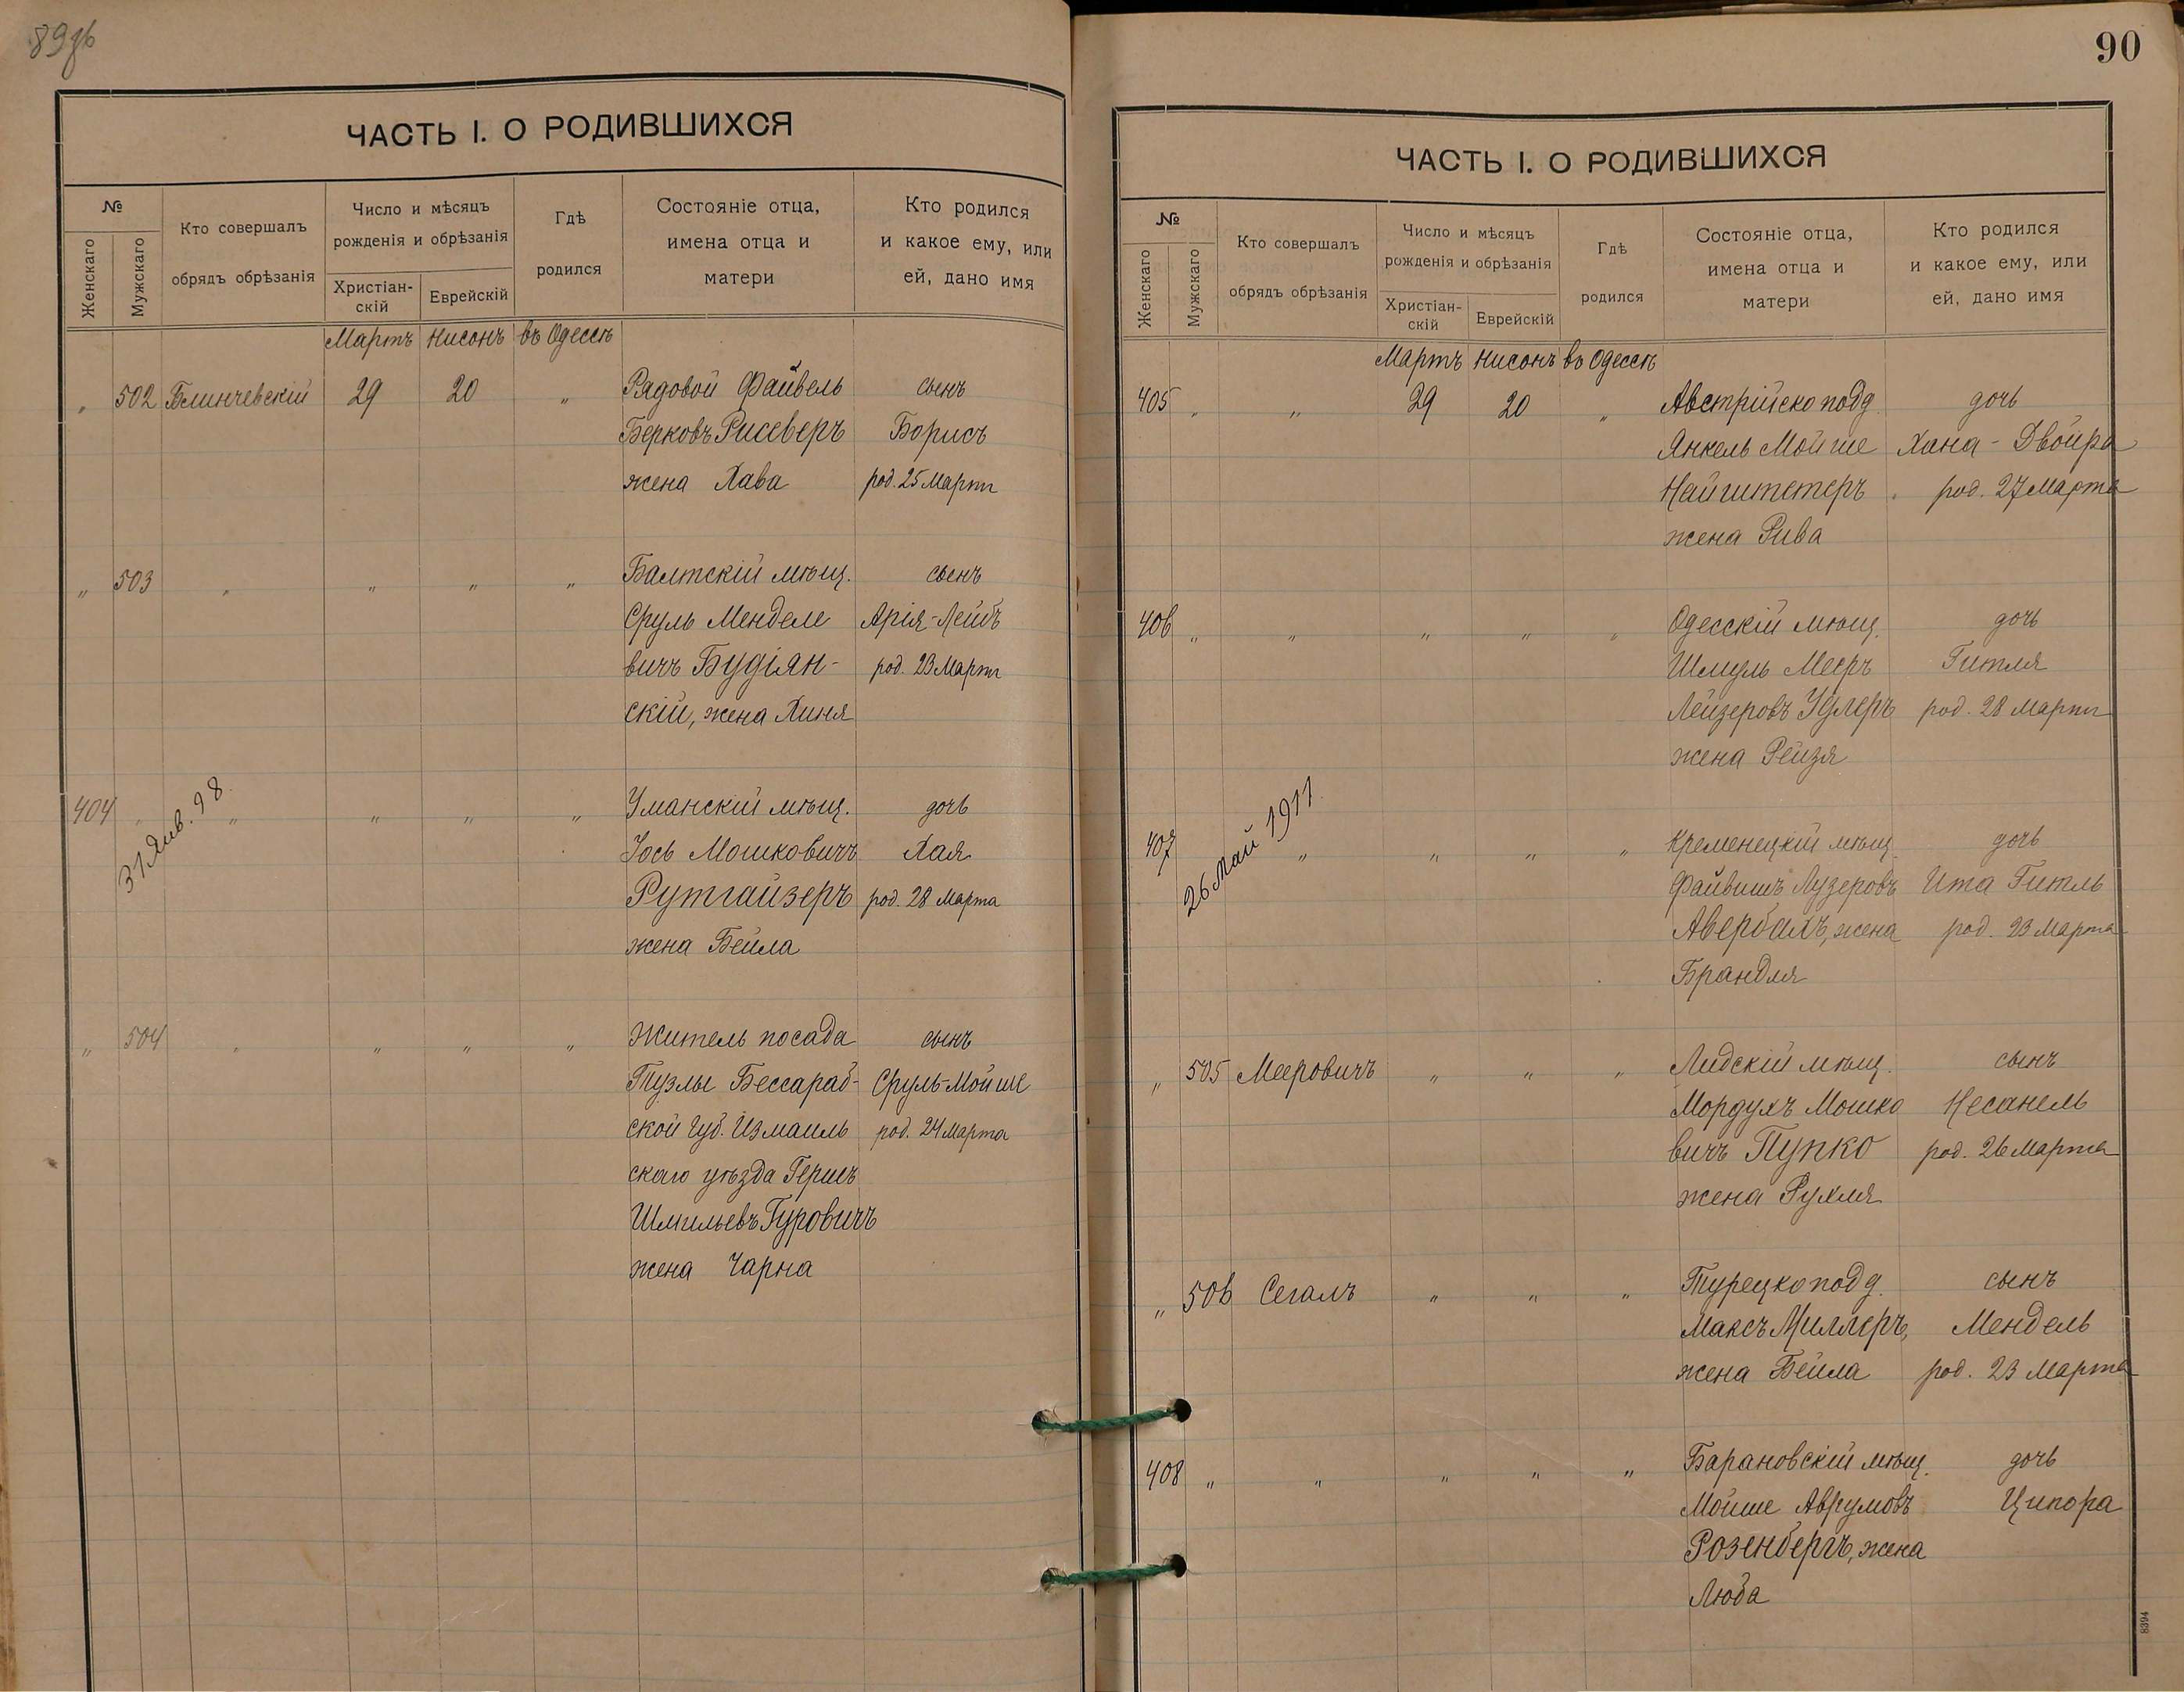 89об
ЧАСТЬ I. О РОДИВШИХСЯ
№
Женскаго
Мужскаго
Кто совершалъ
обрядъ обрѣзанія
Число и мѣсяцъ
рожденія и обрѣзанія
Христіан-
скій
Еврейскій
Гдѣ
родился
Состояніе отца,
имена отца и
матери
Кто родился
и какое ему, или
ей, дано имя
Мартъ Нисонъ въ Одессѣ
" 502 Блинчевскій 29 20 " Рядовой Файвель сынъ
Берковъ Рисеверъ Борисъ
жена Хава род. 25 Марта
" 503 " " " " Балтскій мѣщ. сынъ
Сруль Менделе Арія-Лейбъ
вичъ Будіян- род. 23 Марта
скій, жена Хиня
404 " " " " " Уманскій мѣщ. дочь
31 Янв. 98.
Іось Мошковичъ Хая
Рутгайзеръ род. 28 Марта
жена Бейла
" 504 " " " " Житель посада сынъ
Тузлы Бессараб- Сруль-Мойше
ской Губ. Измаиль род. 24 Марта
скаго уѣзда Герисъ
Шмильевъ Гуровичъ
жена Чарна
90
ЧАСТЬ I. О РОДИВШИХСЯ
№
Женскаго
Мужскаго
Кто совершалъ
обрядъ обрѣзанія
Число и мѣсяцъ
рожденія и обрѣзанія
Христіан-
скій
Еврейскій
Гдѣ
родился
Состояніе отца,
имена отца и
матери
Кто родился
и какое ему, или
ей, дано имя
Мартъ Нисонъ въ Одессѣ
405 " " 29 20 " Австрійско подд. дочь
Янкель Мойше Хана-Двойра
Найштетеръ род. 27 Марта
жена Рива
406 " " " " " Одесскій мѣщ. дочь
Шмуль Мееръ Гитля
Лейзеровъ Удлеръ род. 28 Марта
жена Рейзя
407 " " " " Кременецкій мѣщ. дочь
26 Май 1911.
Файвишъ Лузеровъ Ита Гитль
Авербахъ, жена род. 23 Марта
Брандля
" 505 Мееровичъ " " " Лидскій мѣщ. сынъ
Мордухъ Мошко Несанель
вичъ Пупко род. 26 Марта
жена Рухля
" 506 Сегалъ " " " Турецко подд. сынъ
Максъ Миллеръ, Мендель
жена Бейла род. 23 Марта
408 " " " " " Барановскій мѣщ. дочь
Мойше Аврумовъ Ципора
Розенбергъ, жена
Люба
8394